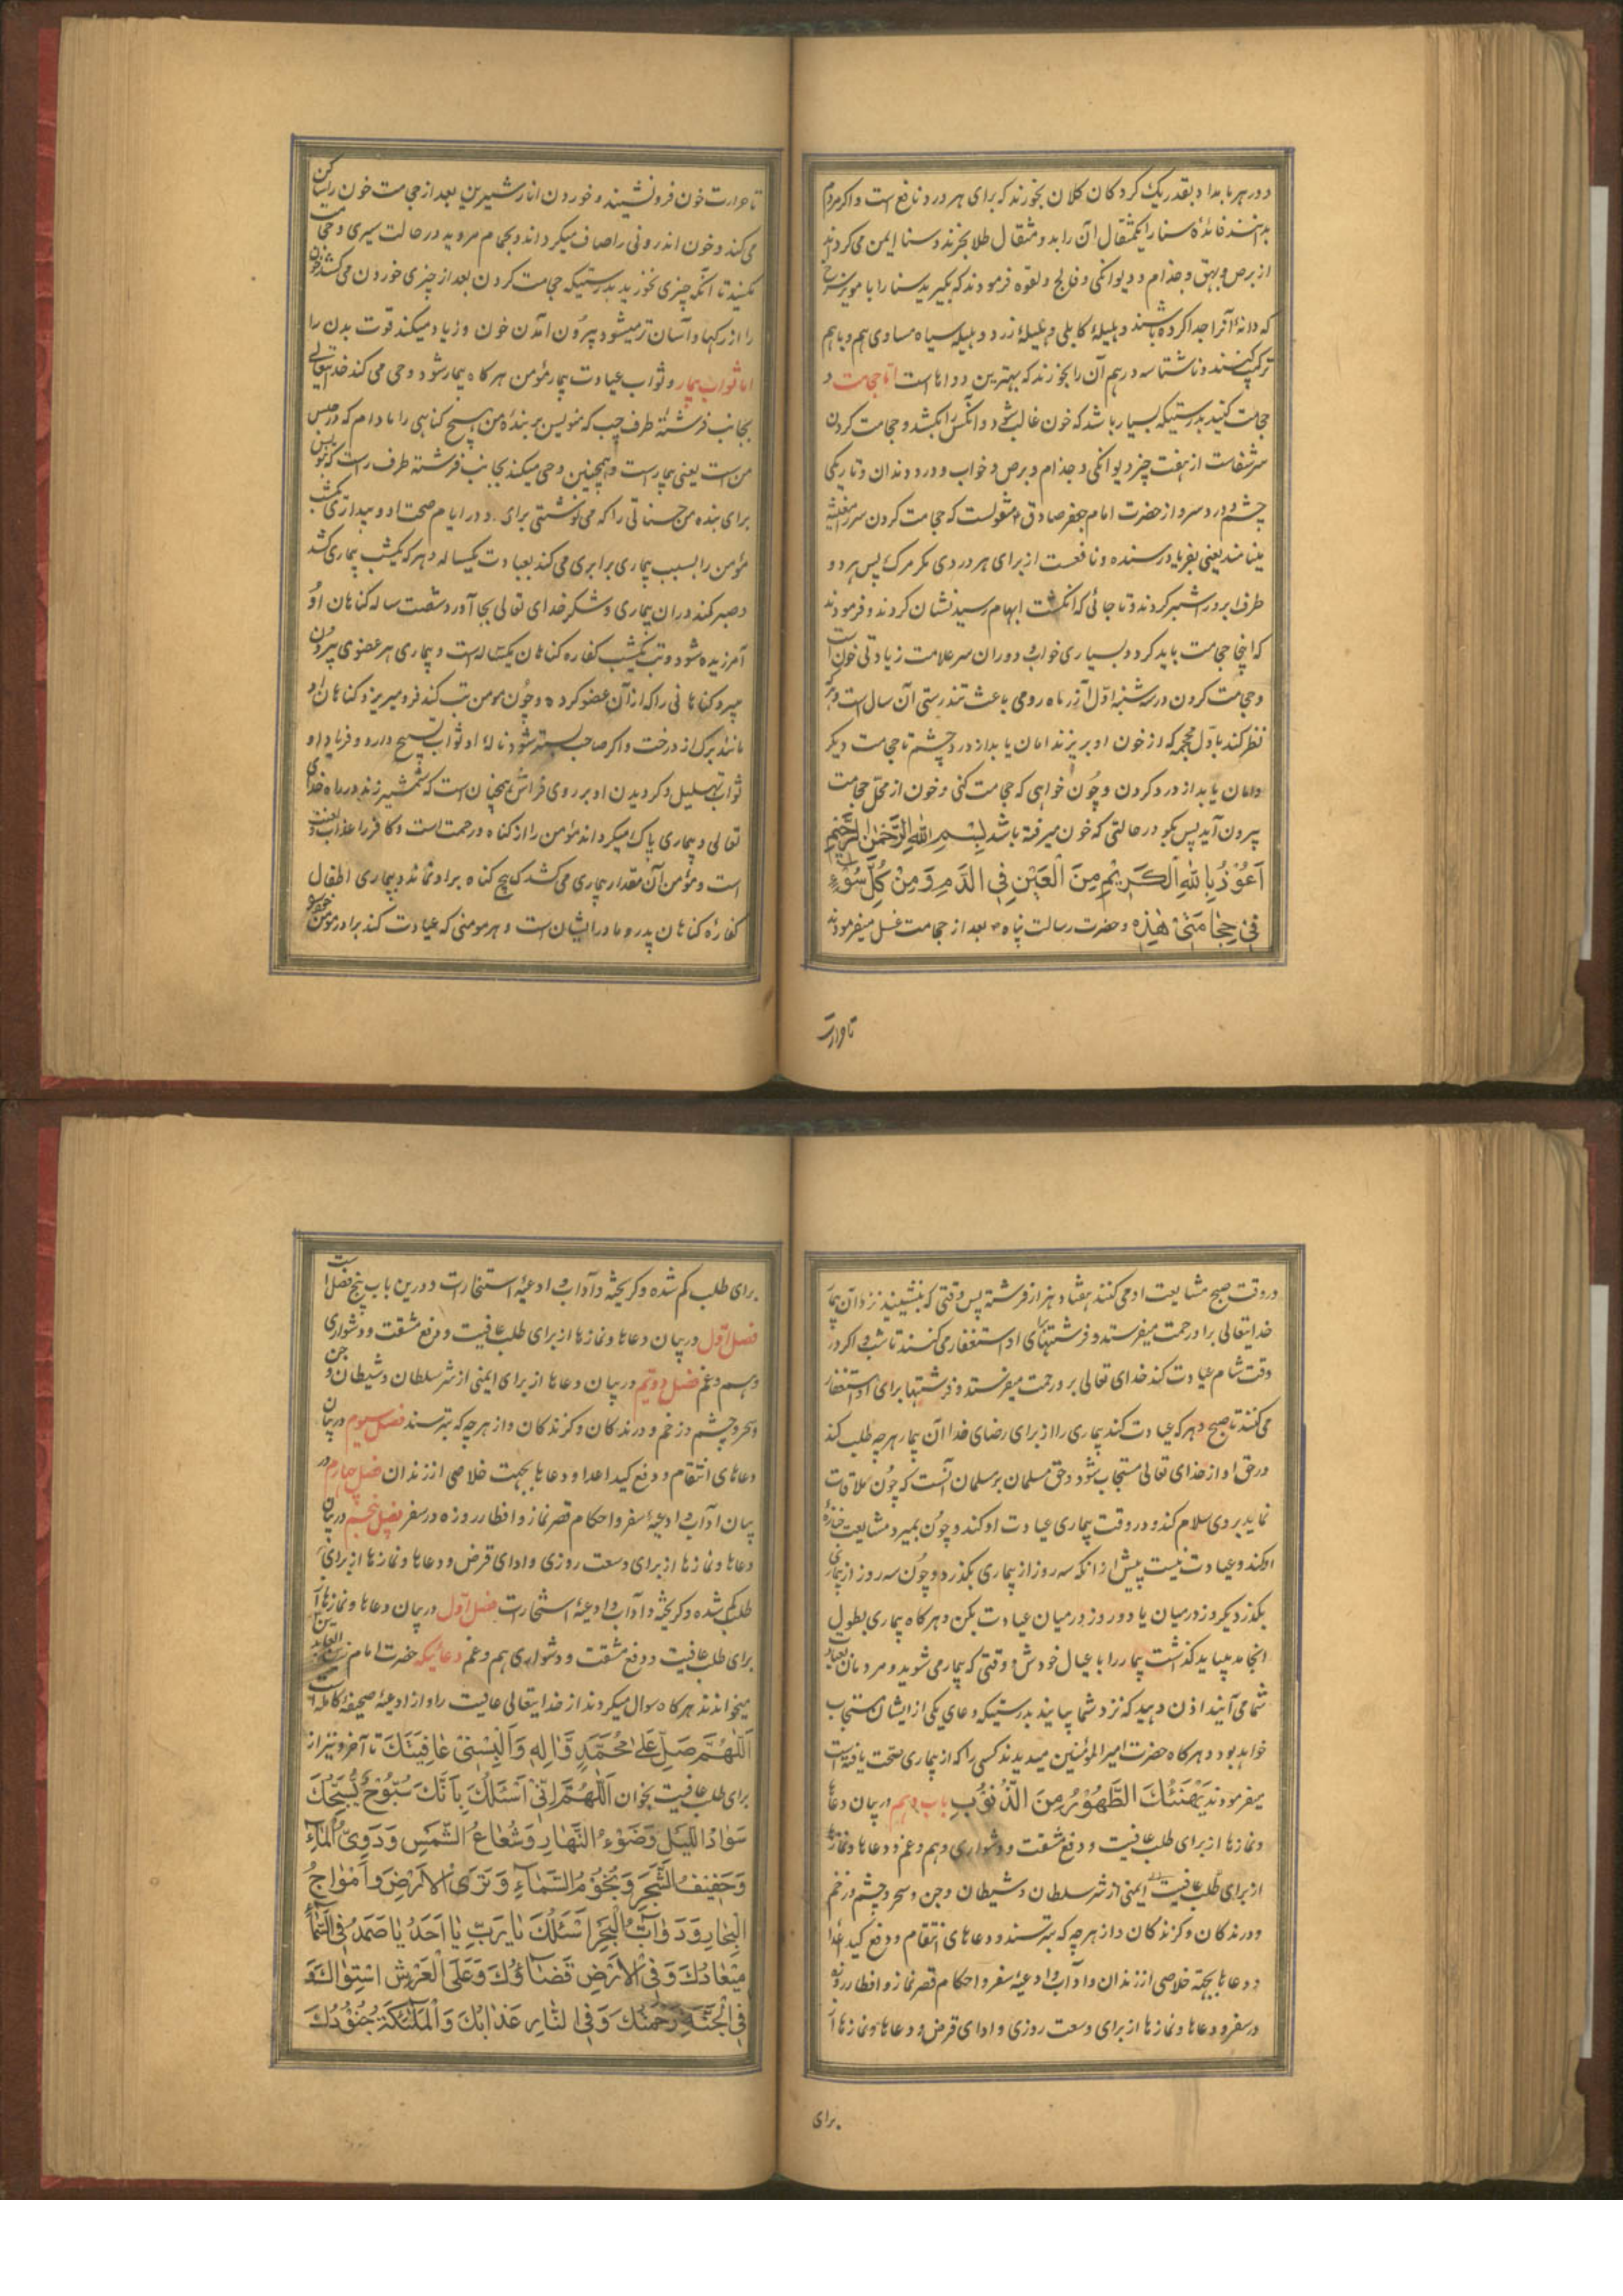 و در هر بامداد بقدر یک گردکان کلان بخورند که برای هر درد نافع است و اگر مردم
بدانند فائدهٔ سنا را یکمثقال آن را بدو مثقال طلا بخرند و سنا ایمن می گرداند
از برص و بهق و جذام و دیوانگی و فالج و لقوه فرمودند که بگیرید سنا را با مویز سرخ
که دانهٔ آنرا جدا کرده باشند و هلیلهٔ کابلی و هلیلهٔ زرد و هلیله سیاه مساوی هم و باهم
ترکیب کنند و ناشتا سه درهم آن را بخورند که بهترین دواها است اما حجامت
حجامت کنید بدرستیکه بسیار باشد که خون غالب شود و آنکس را بکشد و حجامت کردن
سر شفاست از هفت چیز دیوانگی و جذام و برص و خواب و درد دندان و تاریکی
چشم و درد سر و از حضرت امام جعفر صادق منقولست که حجامت کردن سر را مغیثه
مینامند یعنی بفریاد رسنده و نافعست از برای هر دردی مگر مرگ پس هر دو
طرف ابرو را شبر کردند و تا جائی که انگشت ابهام رسید نشان کردند و فرمودند
که اینجا حجامت باید کرد و بسیاری خواب و دوران سر علامت زیادتی خون است
و حجامت کردن در سه شنبهٔ اوّل آذر ماه رومی باعث تندرستی آن سال است و هر که
نظر کند باوّل محجمه که از خون او بریزند امان یابد از درد چشم تا حجامت دیگر
و امان یابد از درد گردن و چون خواهی که حجامت کنی و خون از محلّ حجامت
بیرون آید پس بگو در حالتی که خون میرفته باشد بِسْمِ اللهِ الرَّحْمٰنِ الرَّحِیْمِ
اَعُوْذُ بِاللهِ الْکَرِیْمِ مِنَ الْعَیْنِ فِی الدَّمِ وَ مِنْ کُلِّ سُوْءٍ
فِیْ حِجَامَتِیْ هٰذِهٖ و حضرت رسالت پناه بعد از حجامت غسل میفرمودند
تا حرارت
تا حرارت خون فرو نشیند و خوردن انار شیرین بعد از حجامت خون را ساکن
می کند و خون اندرونی را صاف میگرداند و بحمام مروید در حالت سیری و حجامت
مکنید تا آنکه چیزی نخورید بدرستیکه حجامت کردن بعد از چیزی خوردن می کشد خون
را از رگها و آسان تر میشود بیرون آمدن خون و زیاد میکند قوت بدن را
اما ثواب بیمار و ثواب عیادت بیمار مؤمن هرگاه بیمار شود وحی می کند خدایتعالی
بجانب فرشتهٔ طرف چپ که منویس بر بندهٔ من هیچ گناهی را مادام که در حبس
من است یعنی بیمار است و همچنین وحی میکند بجانب فرشته طرف راست که بنویس
برای بنده من حسناتی را که می نوشتی برای او در ایام صحت او و بیداری یکشب
مؤمن را بسبب بیماری برابری می کند بعبادت یکساله و هر که یکشب بیماری کشد
و صبر کند در ان بیماری و شکر خدای تعالی بجا آورد شصت ساله گناهان او
آمرزیده شود و تب یکشب کفاره گناهان یکساله است و بیماری هر عضوی بیرون
میبرد گناهانی را که از آن عضو کرده و چون مومن تب کند فرو میریزد گناهان او
مانند برگ از درخت و اگر صاحب بستر شود نالهٔ او ثواب تسبیح دارد و فریاد او
ثواب تهلیل و گردیدن او بر روی فراش همچنان است که شمشیر زند در راه خدای
تعالی و بیماری پاک میگرداند مؤمن را از گناه و رحمت است و کافر را عذاب و لعنت
است و مؤمن آن مقدار بیماری می کشد که هیچ گناه بر او نماند و بیماری اطفال
کفارهٔ گناهان پدر و مادر ایشان است و هر مومنی که عیادت کند برادر مومن خود را
در وقت صبح مشایعت او می کنند هفتاد هزار فرشته پس وقتی که بنشیند نزد آن بیمار
خدایتعالی بر او رحمت میفرستد و فرشتهای او استغفار می کنند تا شب و اگر در
وقت شام عیادت کند خدای تعالی بر او رحمت میفرستد و فرشتها برای او استغفار
می کنند تا صبح و هر که عیادت کند بیماری را از برای رضای خدا آن بیمار هر چه طلب کند
در حق او از خدای تعالی مستجاب شود و حق مسلمان بر مسلمان آنست که چون ملاقات
نماید بر وی سلام کند و در وقت بیماری عیادت او کند و چون بمیرد مشایعت جنازهٔ
او کند و عیادت نیست پیش از انکه سه روز از بیماری بگذرد و چون سه روز از بیماری
بگذرد یکروز در میان یا دو روز در میان عیادت بکن و هرگاه بیماری بطول
انجامد بباید گذاشت بیمار را با عیال خودش و وقتی که بیمار می شوید و مردمان بعیادت
شما می آیند اذن دهید که نزد شما بیایند بدرستیکه دعای یکی از ایشان مستجاب
خواهد بود و هرگاه حضرت امیر المؤمنین میدیدند کسی را که از بیماری صحت یافته است
میفرمودند یَهْنِئُكَ الطَّهُوْرُ مِنَ الذُّنُوْبِ باب دهم در بیان دعا
و نمازها از برای طلب عافیت و دفع مشقت و دشواری و هم و غم و دعاها و نماز
از برای طلب عافیت ایمنی از شر سلطان و شیطان و جن و سحر و چشم زخم
و درندگان و گزندگان و از هر چه که بترسند و دعاهای انتقام و دفع کید اعدا
و دعاها بجهة خلاصی از زندان و آداب و ادعیهٔ سفر و احکام قصر نماز و افطار روزه
در سفر و دعاها و نمازها از برای وسعت روزی و ادای قرض و دعاها و نمازها از
برای
برای طلب گم شده و گریخته و آداب و ادعیهٔ استخارات و درین باب پنج فصل است
فصل اوّل در بیان دعاها و نمازها از برای طلب عافیت و دفع مشقت و دشواری
و هم و غم فصل دویم در بیان دعاها از برای ایمنی از شر سلطان و شیطان و جن
و سحر و چشم زخم و درندگان و گزندگان و از هر چه که بترسند فصل سیوم در بیان
دعاهای انتقام و دفع کید اعدا و دعاها بجهت خلاصی از زندان فصل چهارم در
بیان آداب و ادعیهٔ سفر و احکام قصر نماز و افطار روزه در سفر فصل پنجم در بیان
دعاها و نمازها از برای وسعت روزی و ادای قرض و دعاها و نمازها از برای
طلب گم شده و گریخته و آداب و ادعیهٔ استخارات فصل اوّل در بیان دعاها و نمازها از
برای طلب عافیت و دفع مشقت و دشواری هم و غم دعائیکه حضرت امام زین العابدین
میخواندند هرگاه سوال میکردند از خدایتعالی عافیت را و از ادعیهٔ صحیفهٔ کامله است
اَللّٰهُمَّ صَلِّ عَلٰی مُحَمَّدٍ وَّاٰلِهٖ وَاَلْبِسْنِیْ عَافِیَتَكَ تا آخر و نیز از
برای طلب عافیت بخوان اَللّٰهُمَّ اِنِّیْ اَسْئَلُكَ بِاَنَّكَ سُبُّوْحٌ یُسَبِّحُكَ
سَوَادُ اللَّیْلِ وَضَوْءُ النَّهَارِ وَشُعَاعُ الشَّمْسِ وَدَوِیُّ الْمَاءِ
وَحَفِیْفُ الشَّجَرِ وَنُجُوْمُ السَّمَآءِ وَثَرَی الْاَرْضِ وَاَمْوَاجُ
الْبِحَارِ وَدَوَآبُّ الْبَحْرِ اَسْئَلُكَ یَا رَبِّ یَا اَحَدُ یَا صَمَدُ فِی السَّمَآءِ
مِیْعَادُكَ وَفِی الْاَرْضِ قَضَآؤُكَ وَعَلَی الْعَرْشِ اسْتِوَاؤُكَ وَ
فِی الْجَنَّةِ رَحْمَتُكَ وَفِی النَّارِ عَذَابُكَ وَالْمَلٰٓئِكَةُ جُنُوْدُكَ